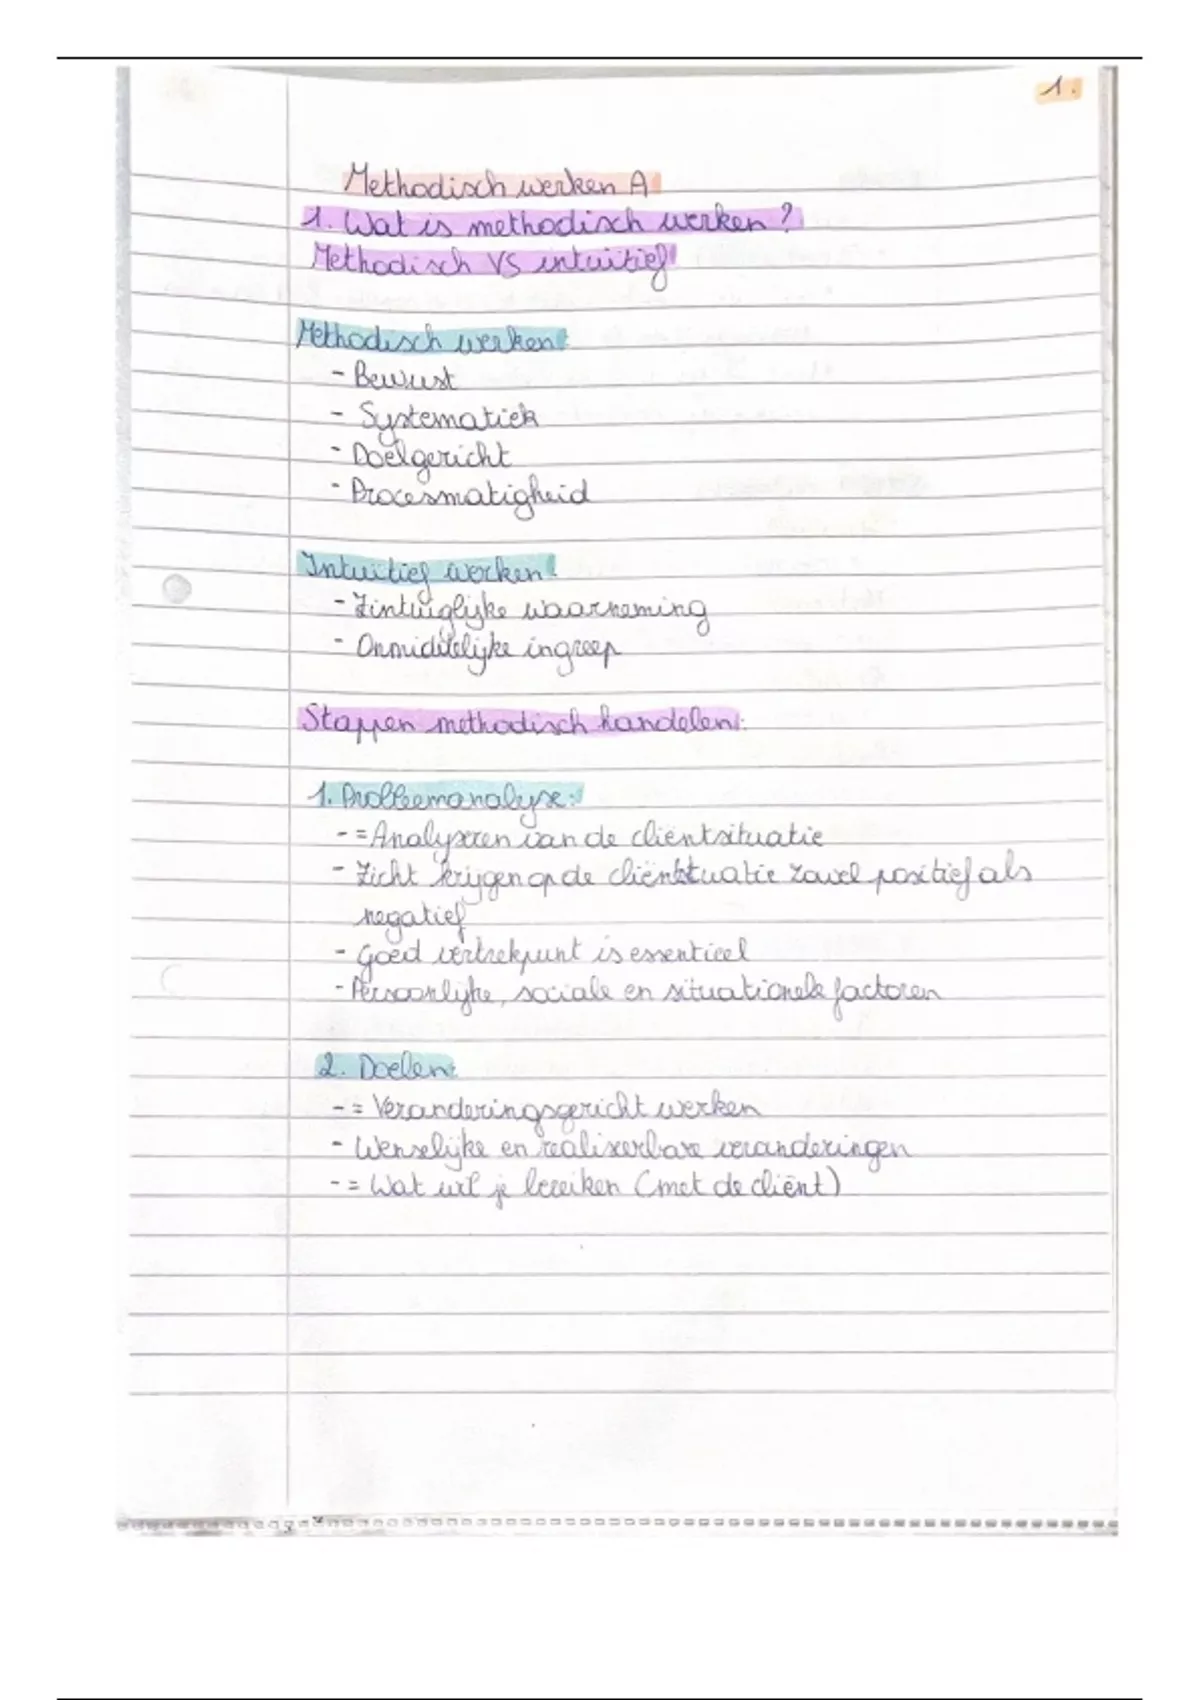 1.
Methodisch werken A
1. Wat is methodisch werken?
Methodisch VS intuitief
Methodisch werken:
- Bewust
- Systematiek
- Doelgericht
- Procesmatigheid
Intuitief werken:
- Zintuiglijke waarneming
- Onmiddelijke ingreep
Stappen methodisch handelen:
1. Probleemanalyse:
- = Analyseren van de cliëntsituatie
- Zicht krijgen op de cliëntstuatie zowel positief als
negatief
- Goed vertrekpunt is essentieel
- Persoonlijke, sociale en situationele factoren
2. Doelen:
- = Veranderingsgericht werken
- Wenselijke en realiseerbare veranderingen
- = Wat wil je bereiken (met de cliënt)